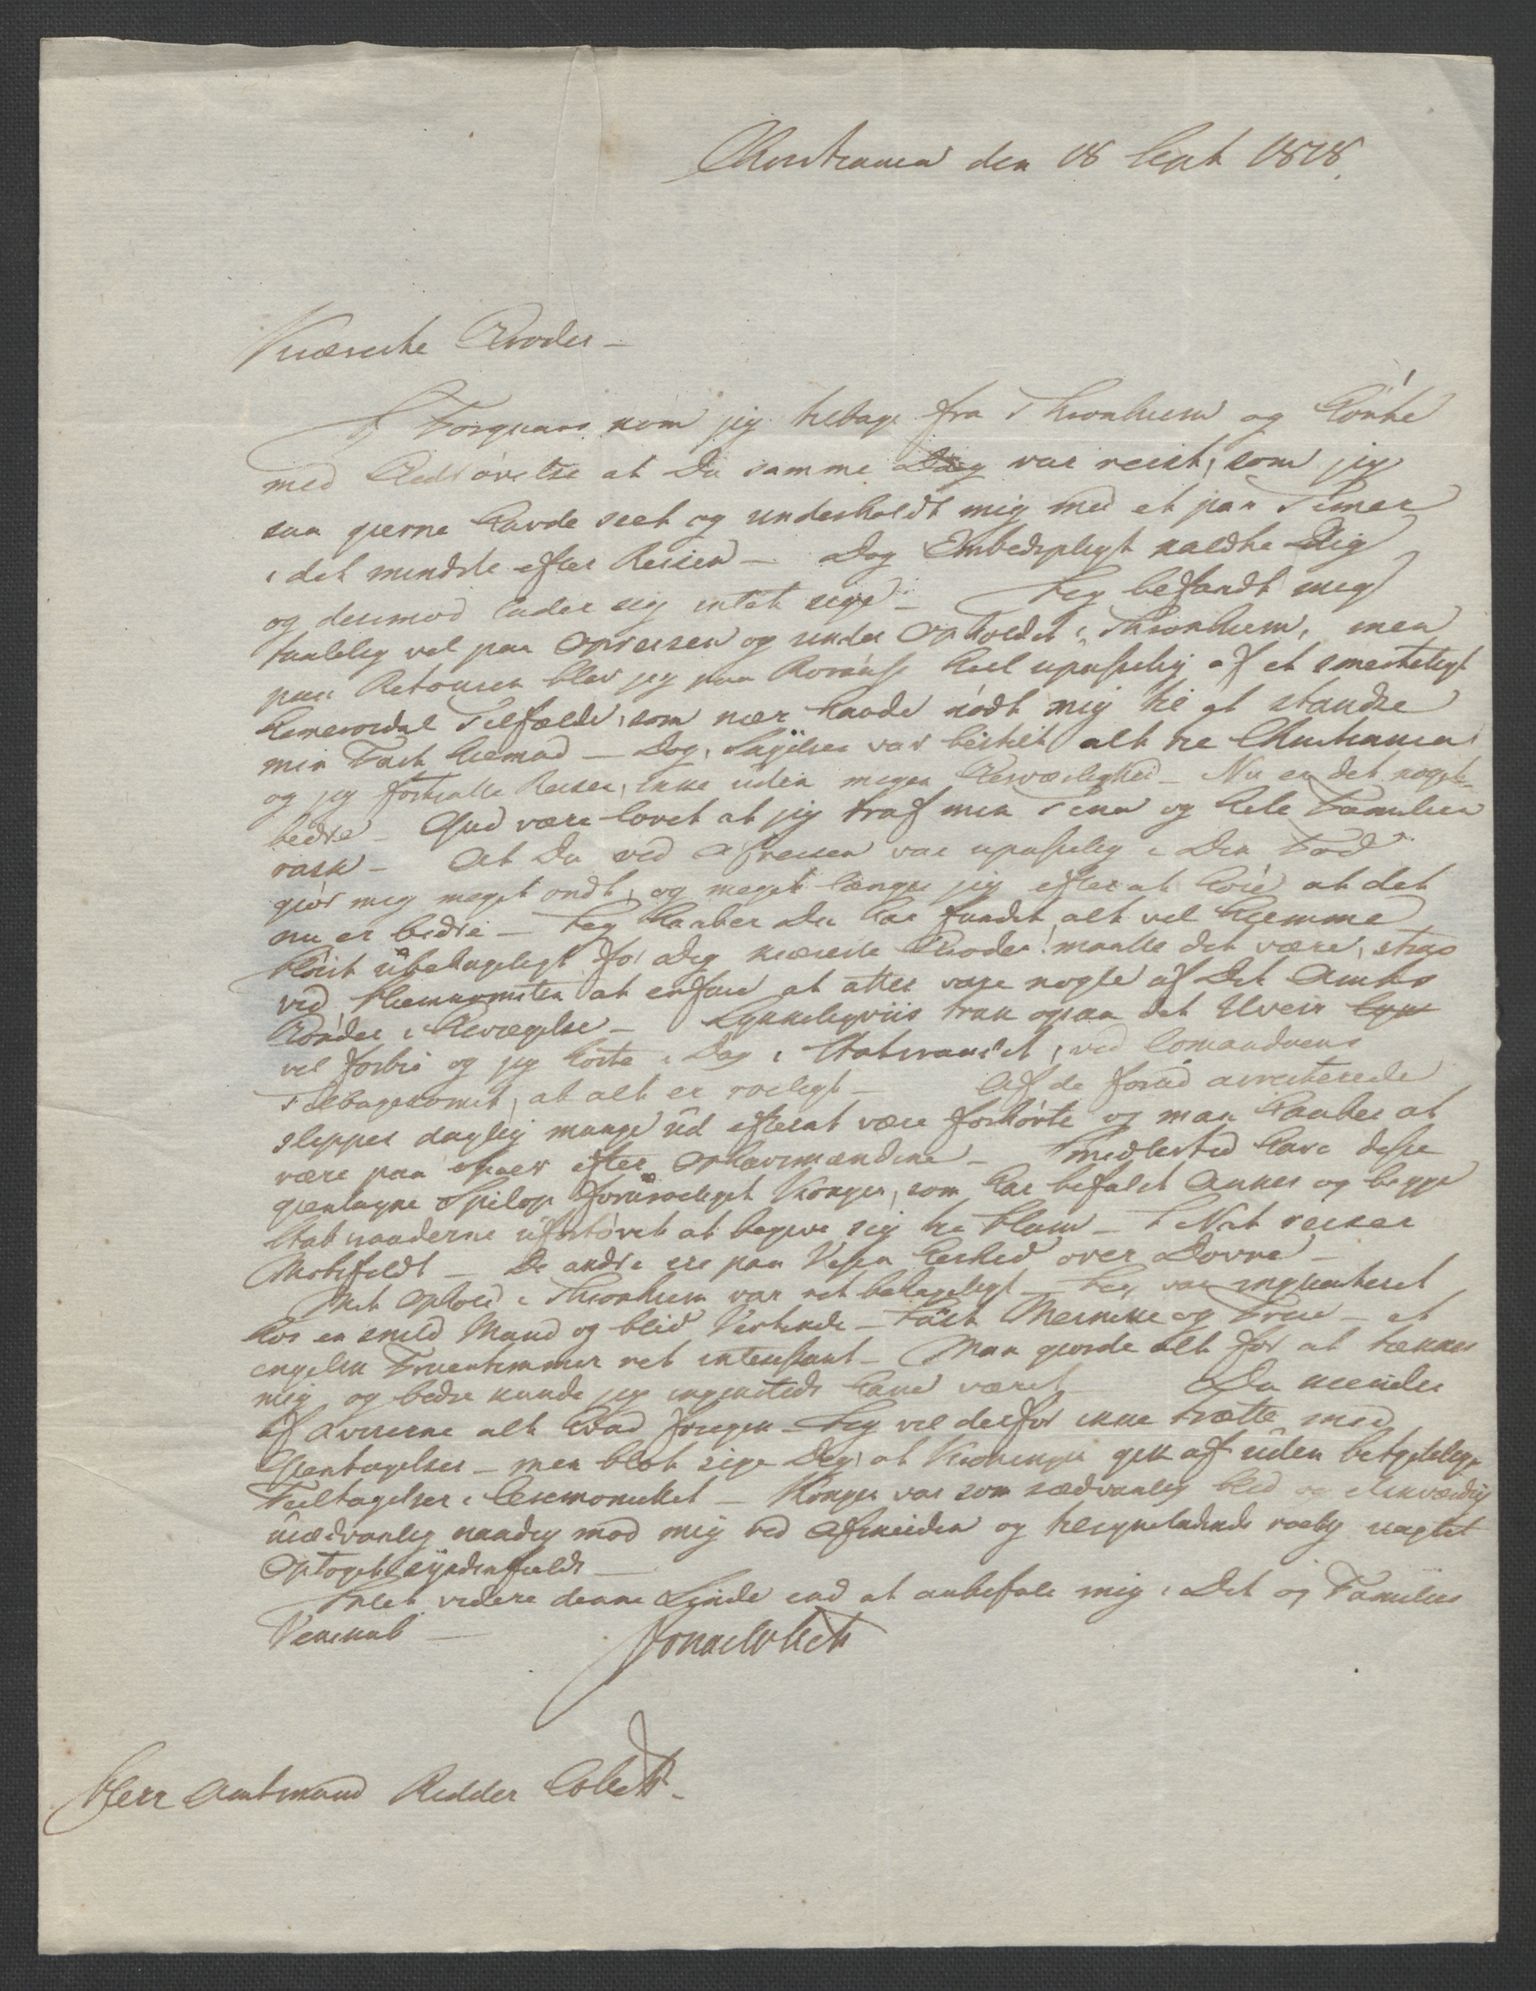 Christiania den 18 Sept 1818.
Kiæreste Broder –
I Forgaars kom jeg tilbage fra Thronhiem og hörte
med Bedrövelse at Du samme Dag var reist, som jeg
saa gierne havde seet og underholdt mig med et par Timer
i det mindste efter Reisen – Dog Embedspligt kaldte Dig
og derimod lader sig intet sige – Jeg befandt mig
taalelig vel paa Opreisen og under Opholdet i Thronhiem, men
paa Retouren blev jeg paa Roraas heel upasselig af et smerteligt
Hemeroidal Tilfælde, som nær havde nödt mig til at standse
min Fart hiemad – Dog, Skydsen var bestilt alt til Christiania
og jeg fortsatte Reisen, ikke uden megen Besværlighed – Nu er det noget
bedre – Gud være lovet at jeg traf min Tina og hele Familien
rask – At Du ved Afreisen var upasselig i Din Fod
giör mig meget ondt, og meget længes jeg efter at höre at det
nu er bedre – Jeg haaber Du har fundet alt vel hiemme
Höist ubehageligt for Dig kiæreste Broder! maatte det være, strax
ved Hiemkomsten at erfare at atter vare nogle af Dit Amts
Bönder i Bevægelse – Lykkeligviis trak ogsaa det Uveir
vel forbi og jeg hörte i Dag i Statsraadet, ved Comandoens
Tilbagekomst, at alt er roeligt – Af de forud arresterede
slippes daglig mange ud efterat være forhörte og man haaber at
være paa Spoer efter Ophavsmændene – Imidlertid have disse
gientagne Spilop foruroeliget Kongen, som har befalet Anker og begge
Statsraaderne ufortövet at begive sig til Ham – I Nat reiser
Motzfeldt – De andre ere paa Veien herhid over Dovre –
Mit Ophold i Thronhiem var ret behageligt – Jeg var inqvarteret
hos en snild Mand og blid Vertinde – Meincke og Frue – et
engelsk Fruentimmer ret interessant – Man giorde alt for at tækkes
mig og bedre kunde jeg ingensteds have været – Du kiender
af Aviserne alt hvad foregik – Jeg vil derfor ikke trætte med
Gientagelser – men blot sige Dig, at Kroningen gik af uden betydelige
Feiltagelser i Ceremoniellet – Kongen var som sædvanlig blid og elskværdig
usædvanlig naadig mod mig ved Afskeiden og tilsyneladende roelig uagtet
Optoget syndenfields –
Intet videre denne Sinde end at anbefale mig i Dit og Families
Venskab – JonasCollett
Herr Amtmand Ridder Collett –